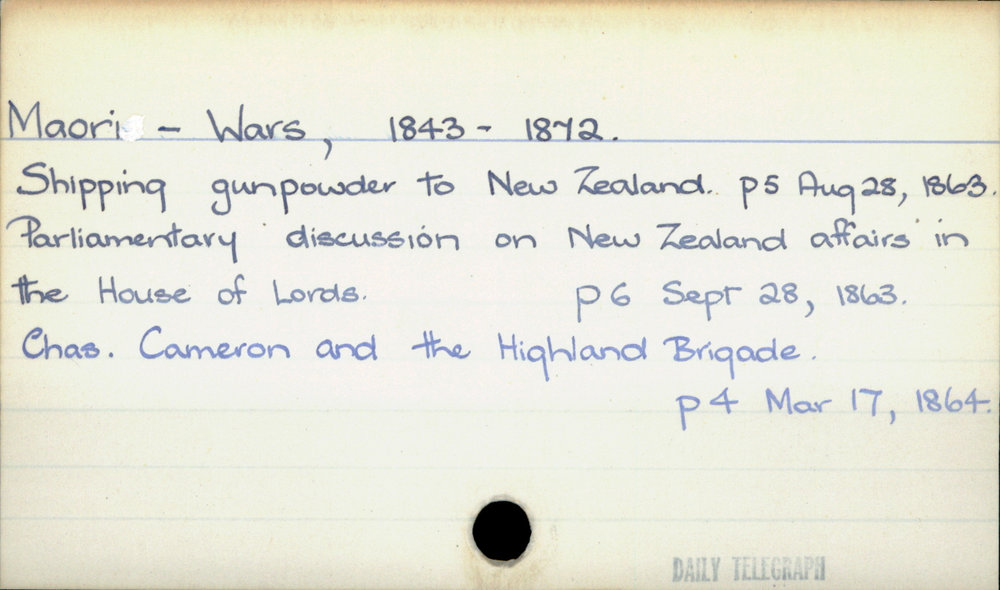 Maori - Wars, 1843 - 1872.
Shipping gunpowder to New Zealand. p5 Aug 28, 1863.
Parliamentary discussion on New Zealand affairs in
the House of Lords. p6 Sept 28, 1863.
Chas. Cameron and the Highland Brigade.
p4 Mar 17, 1864.
DAILY TELEGRAPH